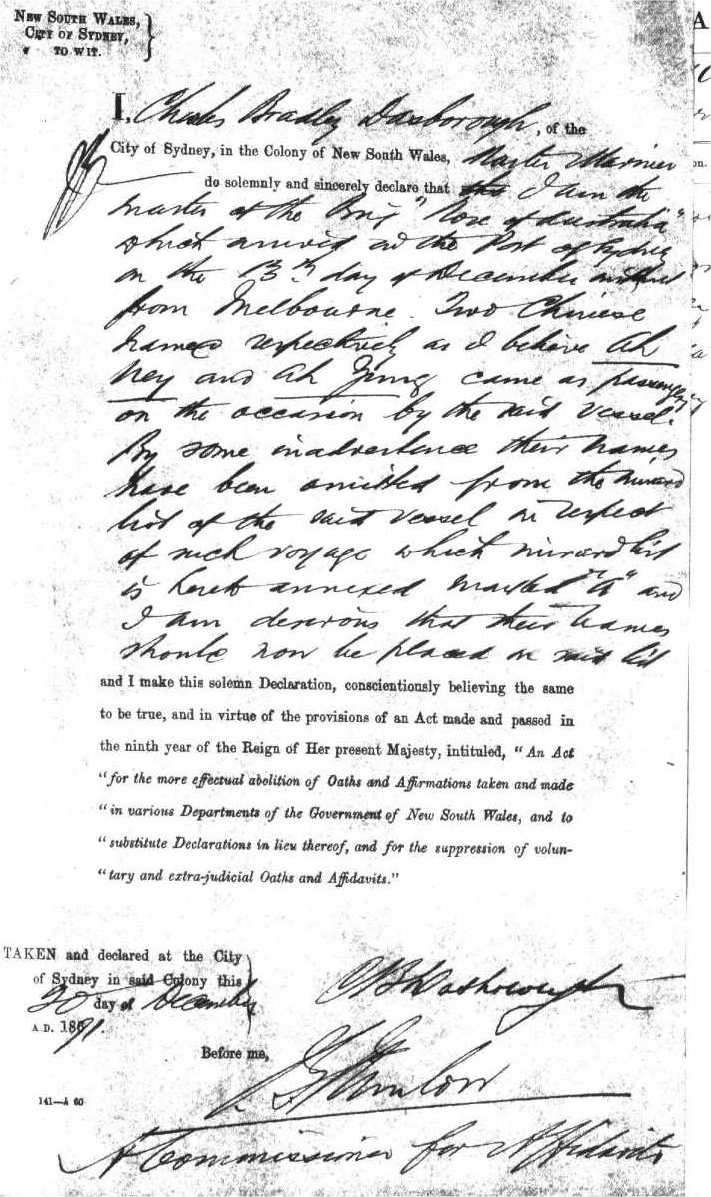 NEW SOUTH WALES,
CITY OF SYDNEY,
TO WIT.
I, Charles Bradley Dasborough, of the
City of Sydney, in the Colony of New South Wales, Master Mariner
do solemnly and sincerely declare that I am the
master of the Brig "Rose of Australia"
which arrived in the Port of Sydney
on the 13th day of December instant
from Melbourne. Two Chinese
named respectively as I believe Ah
and Ah came as passengers
on the occasion by the said vessel.
By some inadvertence their names
have been omitted from the inward
list of the said vessel in respect
of such voyage which inward list
is hereto annexed marked "A" and
I am desirous that their names
should now be placed on said list
and I make this solemn Declaration, conscientiously believing the same
to be true, and in virtue of the provisions of an Act made and passed in
the ninth year of the Reign of Her present Majesty, intituled, "An Act
"for the more effectual abolition of Oaths and Affirmations taken and made
"in various Departments of the Government of New South Wales, and to
"substitute Declarations in lieu thereof, and for the suppression of volun-
"tary and extra-judicial Oaths and Affidavits."
TAKEN and declared at the City
of Sydney in said Colony this
30 day of December
A.D. 1891.
Before me,
141—A 60
A Commissioner for Affidavits